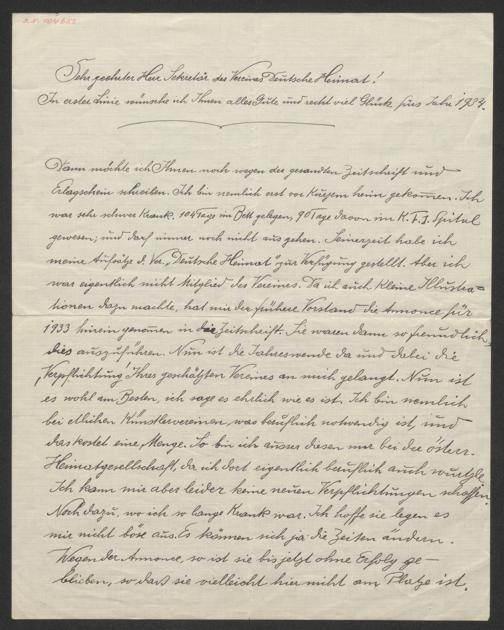 I.N. 194652
Sehr geehrter Herr Sekretär des Vereines Deutsche Heimat!
In erster Linie wünsche ich Ihnen alles Gute und recht viel Glück fürs Jahr 1934.
Dann möchte ich Ihnen noch wegen der gesandten Zeitschrift und
Erlagschein schreiben. Ich bin nemlich erst vor Kurzem heim gekommen. Ich
war sehr schwer Krank. 104 Tage im Bett gelegen, 90 Tage davon im K.F.J. Spital
gewesen; und darf immer noch nicht aus gehen. Seinerzeit habe ich
meine Aufsätze d. Ver. "Deutsche Heimat" zur Verfügung gestellt. Aber ich
war eigentlich nicht Mitglied des Vereines. Da ich auch kleine Illustra-
tionen dazu machte, hat mir der frühere Vorstand die Annonce für
1933 hinein genommen in die Zeitschrift. Sie waren dann so freundlich,
dies auszuführen. Nun ist die Jahreswende da und dabei die
"Verpflichtung" Ihres geschätzten Vereines an mich gelangt. Nun ist
es wohl am Besten, ich sage es ehrlich wie es ist. Ich bin nemlich
bei etlichen Künstlervereinen, was beruflich notwendig ist, und
das kostet eine Menge. So bin ich ausser diesen nur bei der österr.
Heimatgesellschaft, da ich dort eigentlich beruflich auch wurzle.
Ich kann mir aber leider keine neuen Verpflichtungen schaffen.
Noch dazu, wo ich so lange Krank war. Ich hoffe sie legen es
mir nicht böse aus. Es können sich ja die Zeiten ändern.
Wegen der Annonce, so ist sie bis jetzt ohne Erfolg ge-
blieben, so dass sie vielleicht hier nicht am Platze ist.